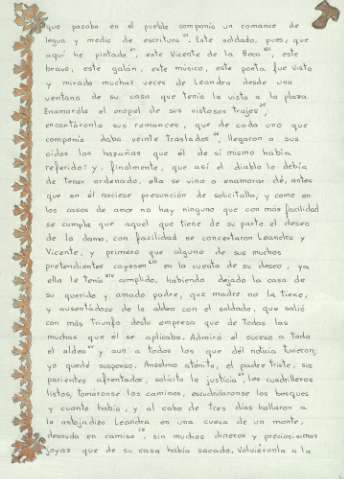 que pasaba en el pueblo componía un romance de
legua y media de escritura. Este soldado, pues, que
aquí he pintado, este Vicente de la Roca, este
bravo, este galán, este músico, este poeta fue visto
y mirado muchas veces de Leandra desde una
ventana de su casa que tenía la vista a la plaza.
Enamoróla el oropel de sus vistosos trajes,
encantáronla sus romances, que de cada uno que
componía daba veinte traslados, llegaron a sus
oídos las hazañas que él de sí mismo había
referido: y finalmente, que así el diablo lo debía
de tener ordenado, ella se vino a enamorar dél, antes
que en él naciese presunción de solicitalla; y como en
los casos de amor no hay ninguno que con más facilidad
se cumpla que aquel que tiene de su parte el deseo
de la dama, con facilidad se concertaron Leandra y
Vicente, y primero que alguno de sus muchos
pretendientes cayesen en la cuenta de su deseo, ya
ella le tenía cumplido, habiendo dejado la casa de
su querido y amado padre, que madre no la tiene,
y ausentádose de la aldea con el soldado, que salió
con más triunfo desta empresa que de todas las
muchas que él se aplicaba. Admiró el suceso a toda
el aldea y aun a todos los que dél noticia tuvieron;
yo quedé suspenso, Anselmo atónito, el padre triste, sus
parientes afrentados, solícita la justicia, los cuadrilleros
listos; tomáronse los caminos, escudriñáronse los bosques
y cuanto había, y al cabo de tres días hallaron a
la antojadiza Leandra en una cueva de un monte,
desnuda en camisa, sin muchos dineros y preciosísimas
joyas que de su casa había sacado. Volviéronla a la